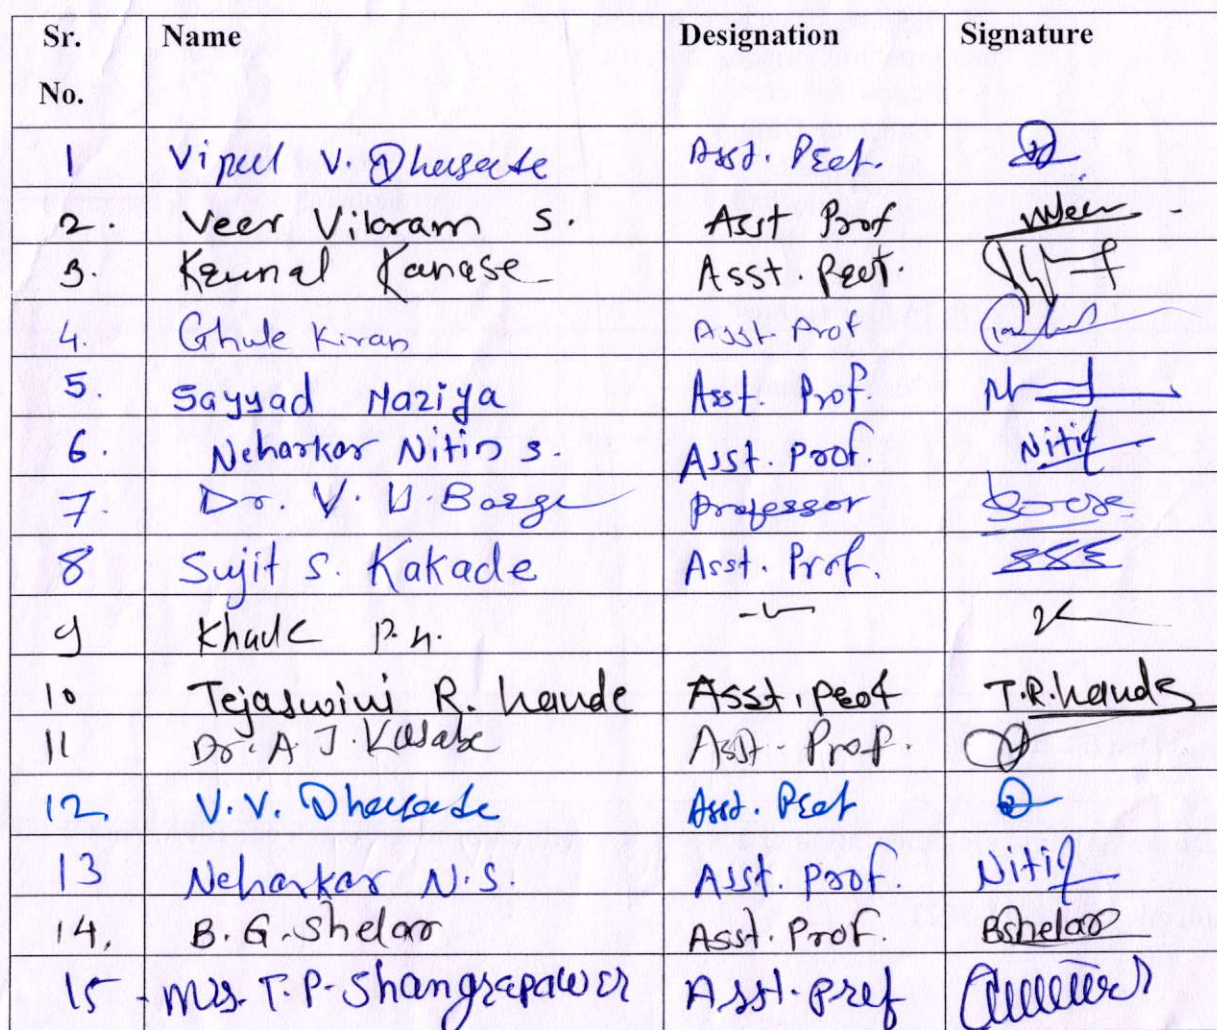 Sr. No. Name Designation Signature
1 Vipul V. Dhasade Asst. Prof.
2. Veer Vikram S. Asst Prof Veer
3. Krunal Kanase Asst. Prof.
4. Ghule Kiran Asst Prof
5. Sayyad Naziya Asst. Prof.
6. Neharkar Nitin S. Asst. Prof. Nitin
7. Dr. V. U. Borge Professor
8 Sujit S. Kakade Asst. Prof. SSK
9 Khade P. N. -"-
10 Tejaswini R. Lande Asst. Prof T.R. Lande
11 Dr. A J. Kasabe Asst. Prof.
12. V. V. Dhasade Asst. Prof
13 Neharkar N.S. Asst. Prof. Nitin
14. B. G. Shelar Asst. Prof. BShelar
15 Mrs. T. P. Asst. Prof